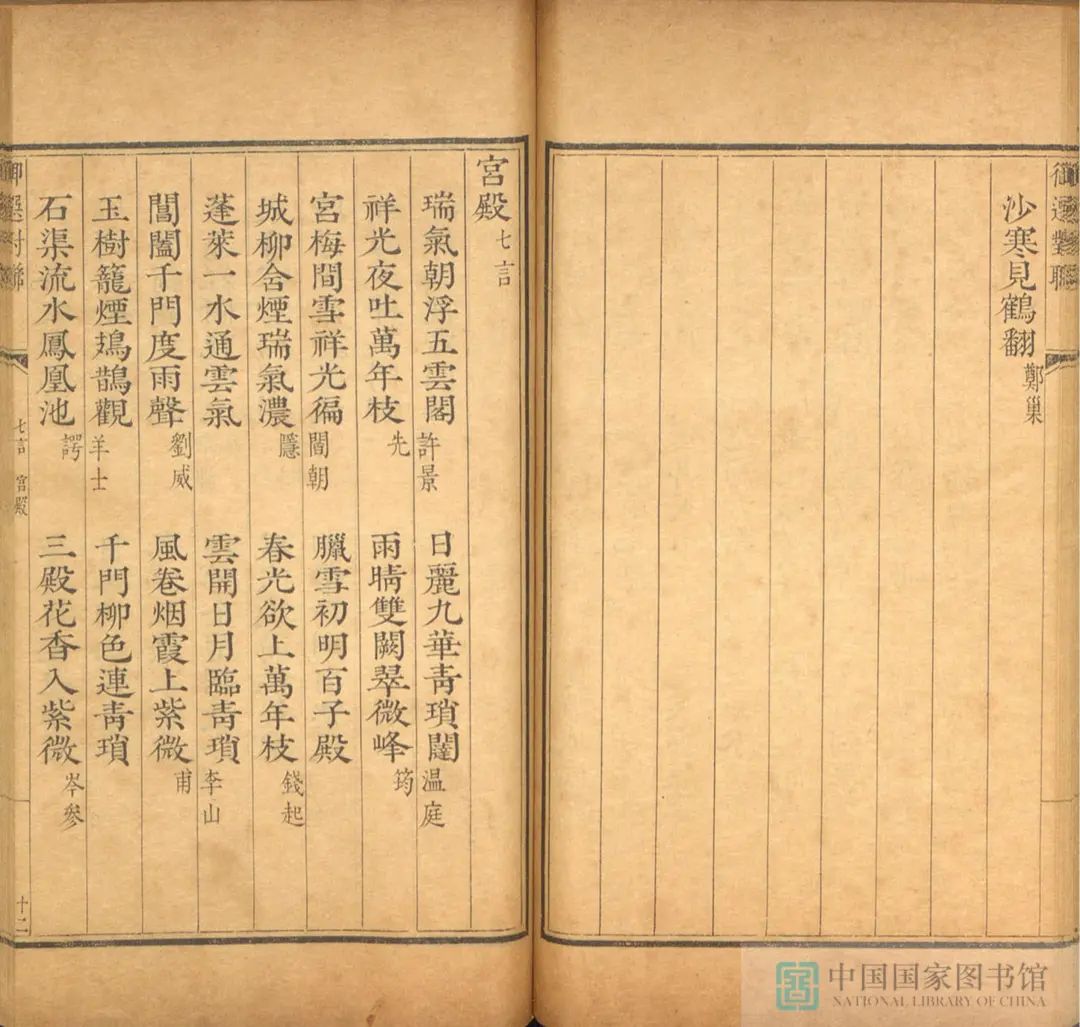 御選對聯
沙寒見鶴翻 鄭巢
宮殿 七言
瑞氣朝浮五雲閣 許景 日麗九華靑瑣闥 温庭
祥光夜吐萬年枝 先 雨晴雙闕翠微峰 筠
宮梅間雪祥光徧 閻朝 臘雪初明百子殿
城柳含煙瑞氣濃 隱 春光欲上萬年枝 錢起
蓬萊一水通雲氣 雲開日月臨靑瑣 李山
閶闔千門度雨聲 劉威 風卷烟霞上紫微 甫
玉樹籠煙鳷鵲觀 羊士 千門柳色連靑瑣
石渠流水鳳凰池 諤 三殿花香入紫微 岑參
御選對聯 七言 宮殿 十二
中国国家图书馆
NATIONAL LIBRARY OF CHINA